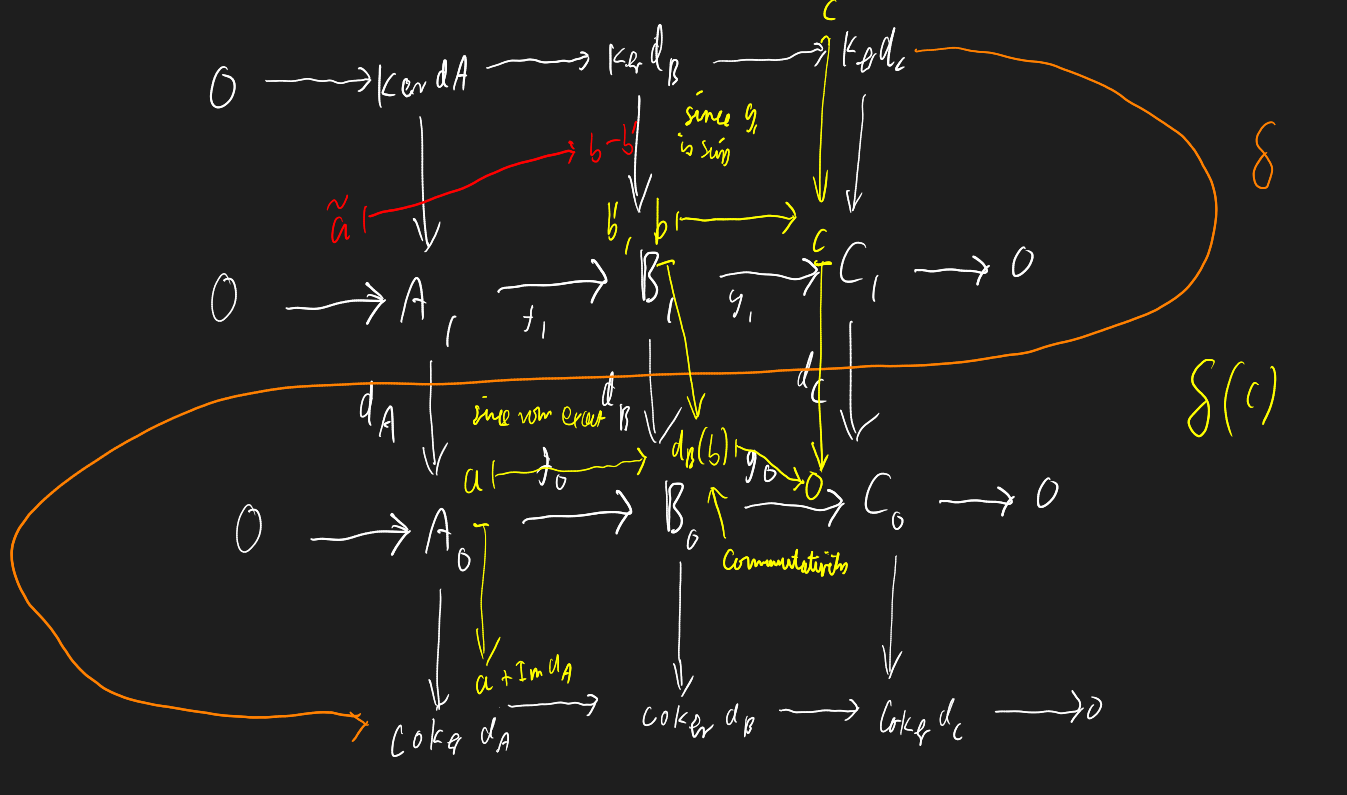 c
0 ker dA ker d_B ker d_C
since g_1
is surj
δ
b-b'
ã
b', b c
0 A_1 B_1 C_1 0
f_1 g_1
d_A d_B d_C
δ(c)
since row exact
a f_0 d_B(b) g_0 0
0 A_0 B_0 C_0 0
Commutativity
a + Im d_A
Coker d_A coker d_B Coker d_C 0